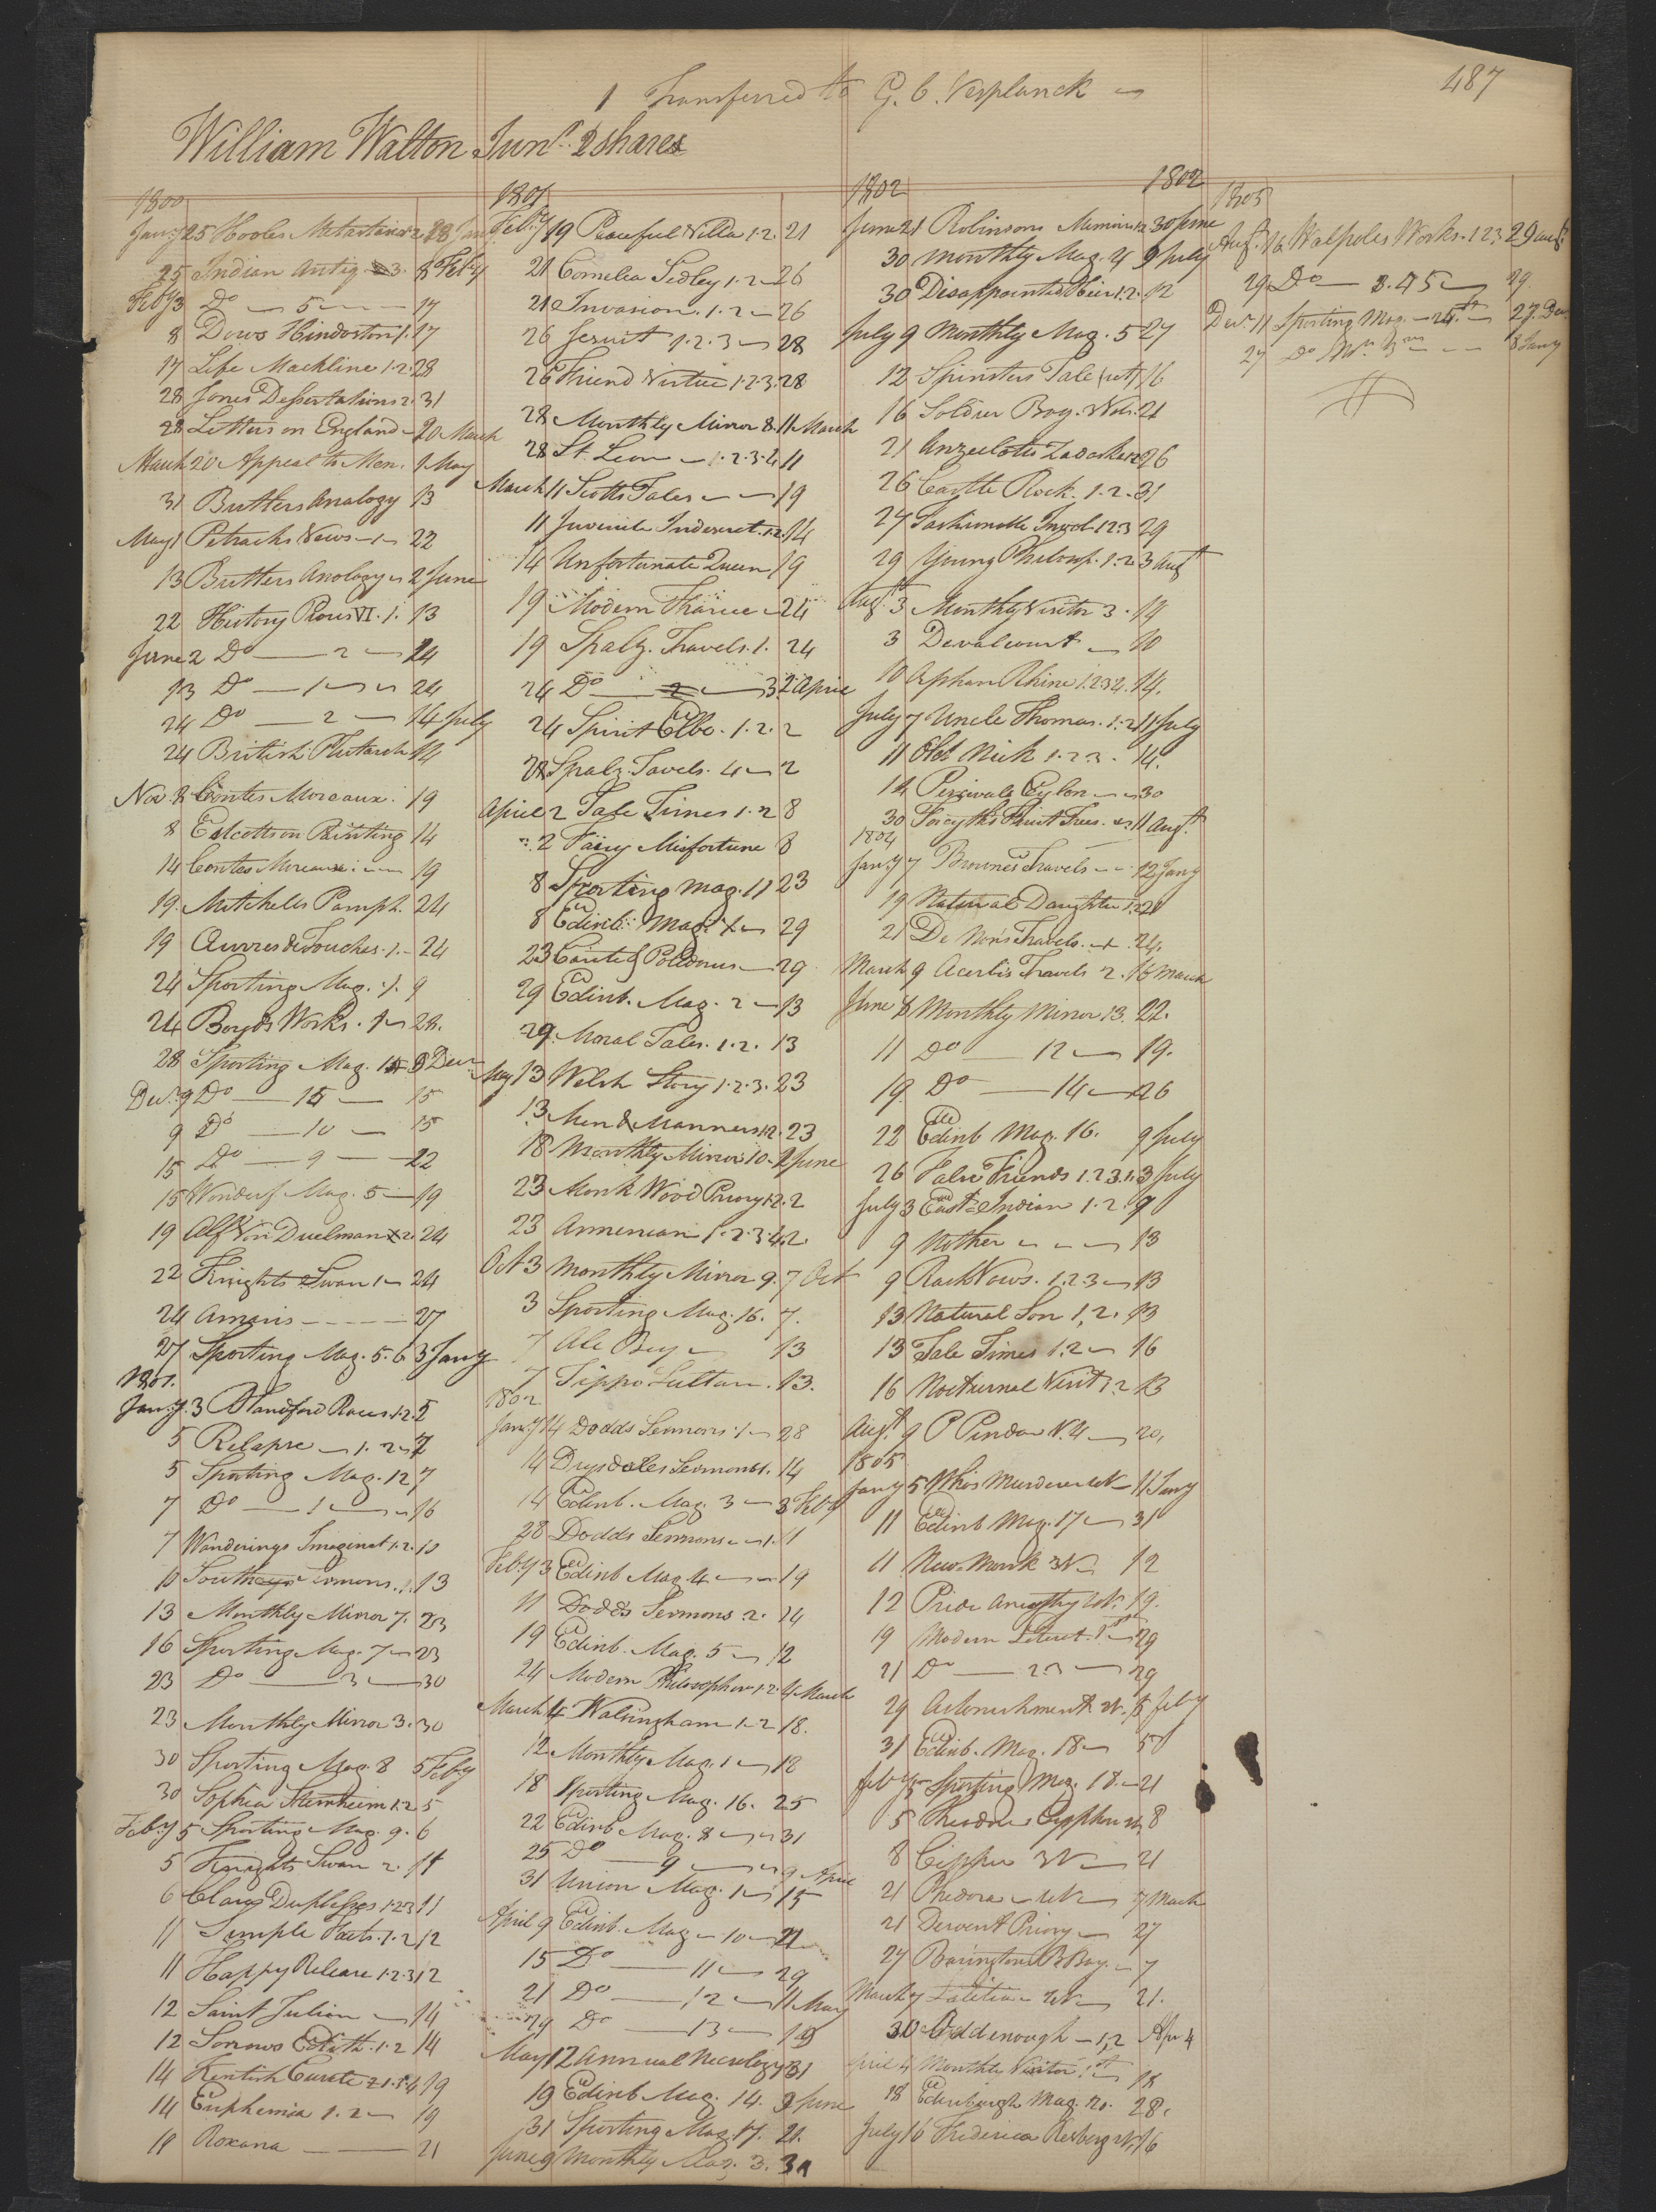 487
1 Transferred to G. C. Verplanck
William Walton Junr. 2 shares
1800
Jany 25 Hooles Metastasio 2 28 Jan
25 Indian Antiq. 3. 8 Feby
Feby 3 Do — 5 — 17
8 Dows Hindostan 1. 17
17 Life Mackline 1.2. 28
28 Jones Dessertations 2. 31
28 Letters on England 20 March
March 20 Appeal to Men. 1 May
31 Buttlers Analogy 13
May 1 Petrachs Views 1 22
13 Buttlers Anology 2 June
22 History Pious VI. 1. 13
June 2 Do — 2 — 24
13 Do — 1 — 24
24 Do — 2 — 14 July
24 British Plutarch 14
Nov. 8 Contes Moreaux. 19
8 Calcott on Painting 14
14 Contes Moreaux 19
19. Mitchells Pamph. 24
19 Œuvres de Touches. 1. 24
24 Sporting Mag. 1. 9
24 Boyds Works. 1 28.
28 Sporting Mag. 15 9 Decr
Decr. 9 Do — 15 — 15
9 Do — 10 — 15
15 Do — 9 — 22
15 Wonderf Mag. 5 — 19
19 Alf Von Duelman 2. 24
22 Knights Swan 1 24
24 Amoris ---- 27
27 Sporting Mag. 5. 6 3 Jany
1801.
Jany. 3 Blandford Races 1.2. 5
5 Relapse — 1. 2 — 7
5 Sporting Mag. 12 7
7 Do — 1 — 16
7 Wanderings Imaginat 1.2. 10
10 Southeys Sermons. 1. 13
13 Monthly Mirror 7. 23
16 Sporting Mag. 7 — 23
23 Do — 3 — 30
23 Monthly Mirror 3. 30
30 Sporting Mag. 8 5 Feby
30 Sophia Sternheim 1.2 5
Feby 5 Sporting Mag. 9. 6
5 Knights Swan 2. 11
6 Clara Duplessis 1.2.3 11
11 Simple Facts. 1. 2 12
11 Happy Release 1.2.3 12
12 Saint Julien — 14
12 Sorrows Edith. 1.2 14
14 Kentish Curate 2.1.3.4 19
14 Euphemia 1. 2 — 19
19 Roxana — 21
1801
Feby 19 Peaceful Villa 1.2. 21
21 Cornelia Sedley 1.2 26
21 Invasion. 1. 2 — 26
26 Jesuit 1.2.3 — 28
26 Friend Virtue 1.2.3. 28
28 Monthly Mirror 8. 11 March
28 St. Leon — 1.2.3.4 11
March 11 Scotts Tales — 19
11 Juvenile Indescret. 1.2. 14
14 Unfortunate Queen 19
19 Modern Thariee 24
19 Spalz. Travels. 1. 24
24 Do — 2 — 3. 2 April
24 Spirit Elbe. 1. 2. 2
28 Spalz. Tavels. 4 — 2
April 2 Tale Times 1. 2 8
2 Fairy Misfortune 8
8 Sporting Mag. 11 23
8 Edinb. Mag. 1 — 29
23 Caste of Polidorus — 29
29 Edinb. Mag. 2 — 13
29. Moral Tales. 1. 2. 13
May 13 Welsh Story 1.2.3. 23
13 Men & Manners 1.2. 23
18 Monthly Mirror 10 2 June
23 Monk Wood Priory 1.2. 2
23 Armenian 1.2.3.4. 2.
Oct 3 Monthly Mirror 9. 7 Oct
3 Sporting Mag. 16. 7.
7 Ale Bey — 13
7 Tippo Sultan. 13.
1802
Jany 14 Dodds Sermons. 1 — 28
14 Drysdales Sermons 1. 14
14 Edinb. Mag. 3 — 3 Feby
28 Dodds Sermons — 1. 11
Feby 3 Edinb Mag. 4 — 19
11 Dodds Sermons. 2. 24
19 Edinb. Mag. 5 — 12
24 Modern Philosopher 1.2. 4 March
March 4 Walsingham 1.2 18.
12 Monthly Mag. 1 — 18
18 Sporting Mag. 16. 25
22 Edinb Mag. 8 — 31
25 Do — 9 — 9 April
31 Union Mag. 1 — 15
April 9 Edinb. Mag — 10 — 21
15 Do — 11 — 29
21 Do — 12 — 11 May
29 Do — 13 — 19
May 12 Annual Necrology 31
19 Edinb Mag. 14. 9 June
31 Sporting Mag. 17. 21.
June 9 Monthly Mag. 3. 30
1802 1802
June 21 Robinsons Memoirs 1.2 30 June
30 Monthly Mag. 4 9 July
30 Disappointed Heir 1.2. 12
July 9 Monthly Mag. 5 27
12 Spinsters Tale (ret) 16
16 Soldier Boy. 3 Vols. 21
21 Anzeeloto Zadaskie 1.2 26
26 Castle Rock. 1. 2. 31
27 Fashionable Invol. 1.2.3 29
29 Young Philosop. 1. 2. 3 Augt
Augt. 3 Monthly Visitor 3. 14
3 Devalcourt — 10
10 Orphan Rhine 1.2.3.4. 14.
July 7 Uncle Thomas. 1. 2 11 July
11 Old Nick 1.2.3. 14.
14 Percivals Ceylon — 30
30 Forcyths Fruit Trees. 11 Augt.
1804
Jany 7 Brownes Travels — 12 Jany
19 Natural Daughter 1.2. 21
21 De Non's Travels. 1. 24.
March 9 Acerbis Travels 2. 16 March
June 8 Monthly Mirror 13. 22.
11 Do — 12 — 19.
19. Do — 14 — 26
22 Edinb Mag. 16. 9 July
26 False Friends 1.2.3. 3 July
July 3 East Indian 1. 2. 9
9 Mother — 13
9 Rash Vows. 1.2.3 — 13
13 Natural Son 1,2. 13
13 Tale Times 1.2 — 16
16 Nocturnal Visit 1.2 23
Augt 9 P Pindar V. 4 — 20,
1805
Jany 5 Who's Murderer 4 V — 11 Jany
11 Edinb Mag. 17 — 31
11 New Monk 3 V 12
12 Pride Ancesthy 4 V. 19.
19 Modern Literet. 1st — 29
21 Do — 2.3 — 29
29 Astonishment 2 V. 5 Feby
31 Edinb. Mag. 18 — 5
Feby 5 Sporting Mag. 18. — 21
5 Theodore Cypphon 2 V. 8
8 Cipper 3 V — 21
21 Phedora — 4 V — 7 March
21 Dervent Priory — 27
27 Barringtons B Bay. — 7
March 7 Lætitia 2 V — 21.
30 Odd enough — 1,2 Apr 4
April 4 Monthly Visitor 1st — 18
18 Edinburgh Mag. 20. 28.
July 16 Frederica Risberg 2 V. 16
1805
Augt. 16 Walpoles Works. 1 2 3 29 Augt
29 Do — 3.4.5 — 29.
Decr. 11 Sporting Mag. — 24th — 27. Decr
27 Do — 8 Jany